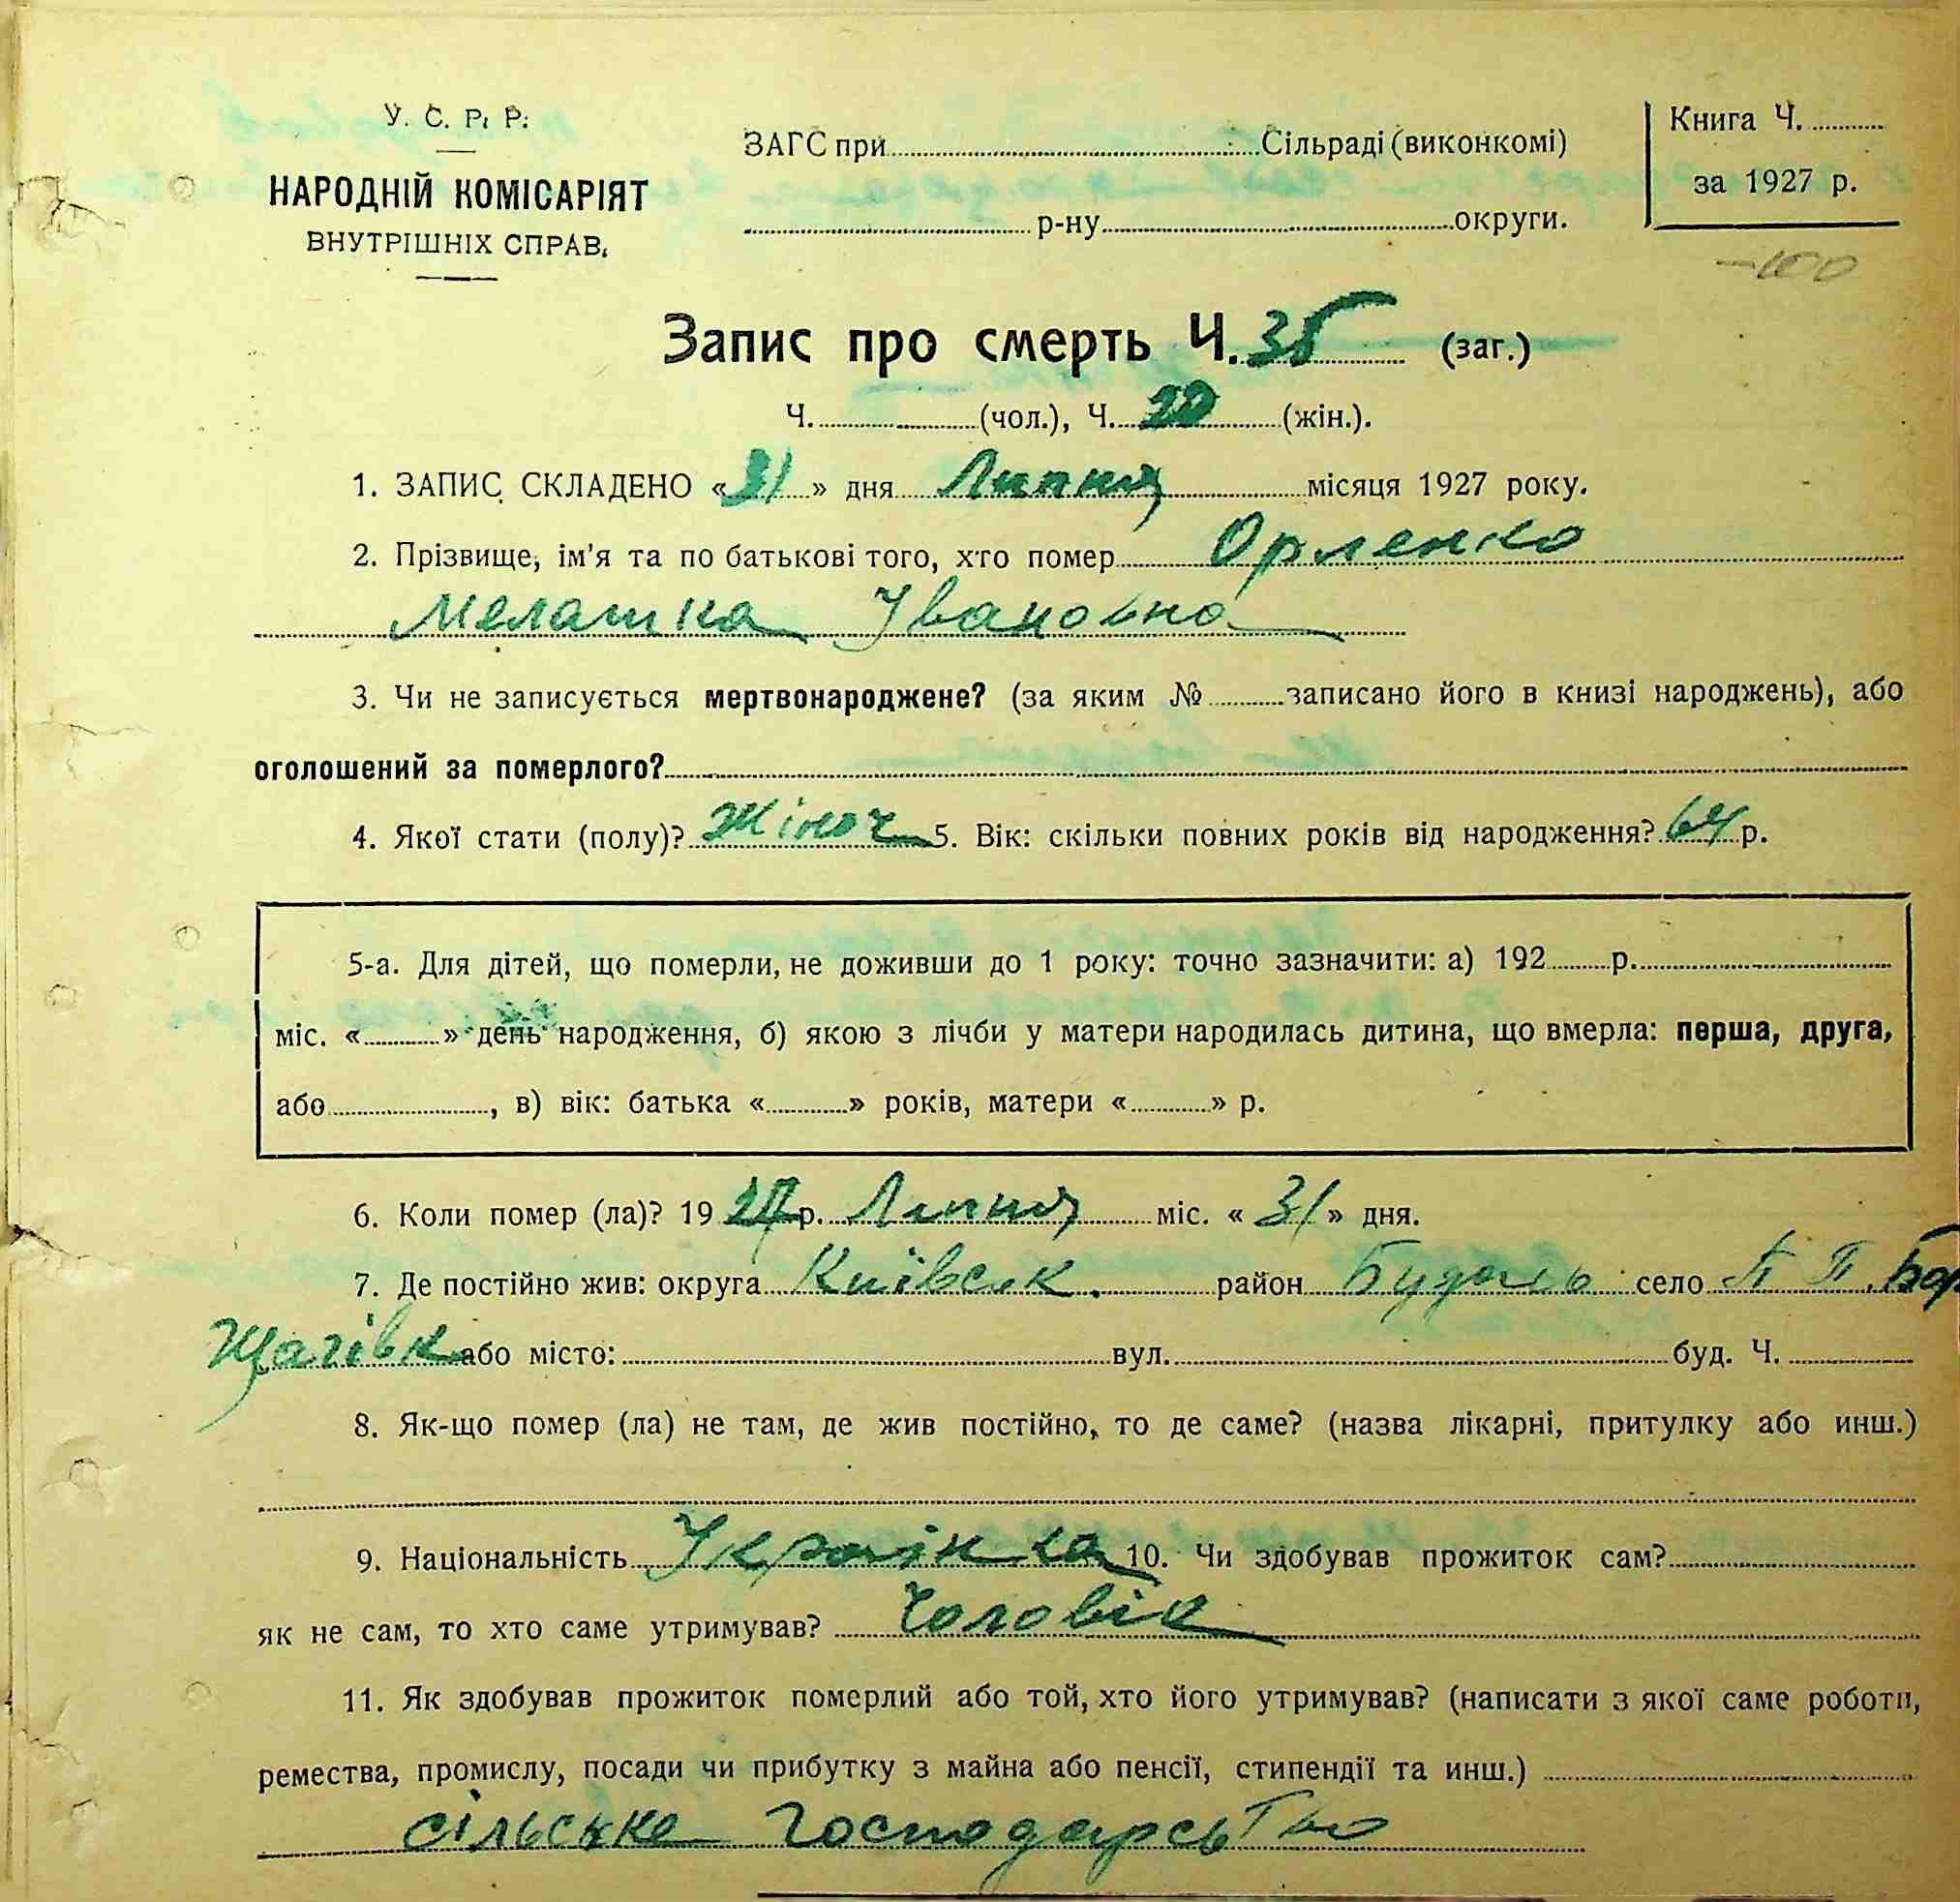 У. С. Р. Р.
НАРОДНІЙ КОМІСАРІЯТ
ВНУТРІШНІХ СПРАВ.
ЗАГС при Сільраді (виконкомі)
р-ну округи.
Книга Ч.
за 1927 р.
Запис про смерть Ч. 35 (заг.)
Ч. (чол.), Ч. 20 (жін.).
1. ЗАПИС СКЛАДЕНО «31» дня Липня місяця 1927 року.
2. Прізвище, ім'я та по батькові того, хто помер Орленко
Мелашка Івановна
3. Чи не записується мертвонароджене? (за яким № записано його в книзі народжень), або
оголошений за померлого?
4. Якої стати (полу)? Жіноч 5. Вік: скільки повних років від народження? 64 р.
5-а. Для дітей, що померли, не доживши до 1 року: точно зазначити: а) 192 р.
міс. « » день народження, б) якою з лічби у матери народилась дитина, що вмерла: перша, друга,
або , в) вік: батька « » років, матери « » р.
6. Коли помер (ла)? 19 27 р. Липня міс. «31» дня.
7. Де постійно жив: округа Київськ. район Будаль село П П. Бор
щагівк або місто: вул. буд. Ч.
8. Як-що помер (ла) не там, де жив постійно, то де саме? (назва лікарні, притулку або инш.)
9. Національність Українка 10. Чи здобував прожиток сам?
як не сам, то хто саме утримував? Чоловік
11. Як здобував прожиток померлий або той, хто його утримував? (написати з якої саме роботи,
ремества, промислу, посади чи прибутку з майна або пенсії, стипендії та инш.)
сільське господарство